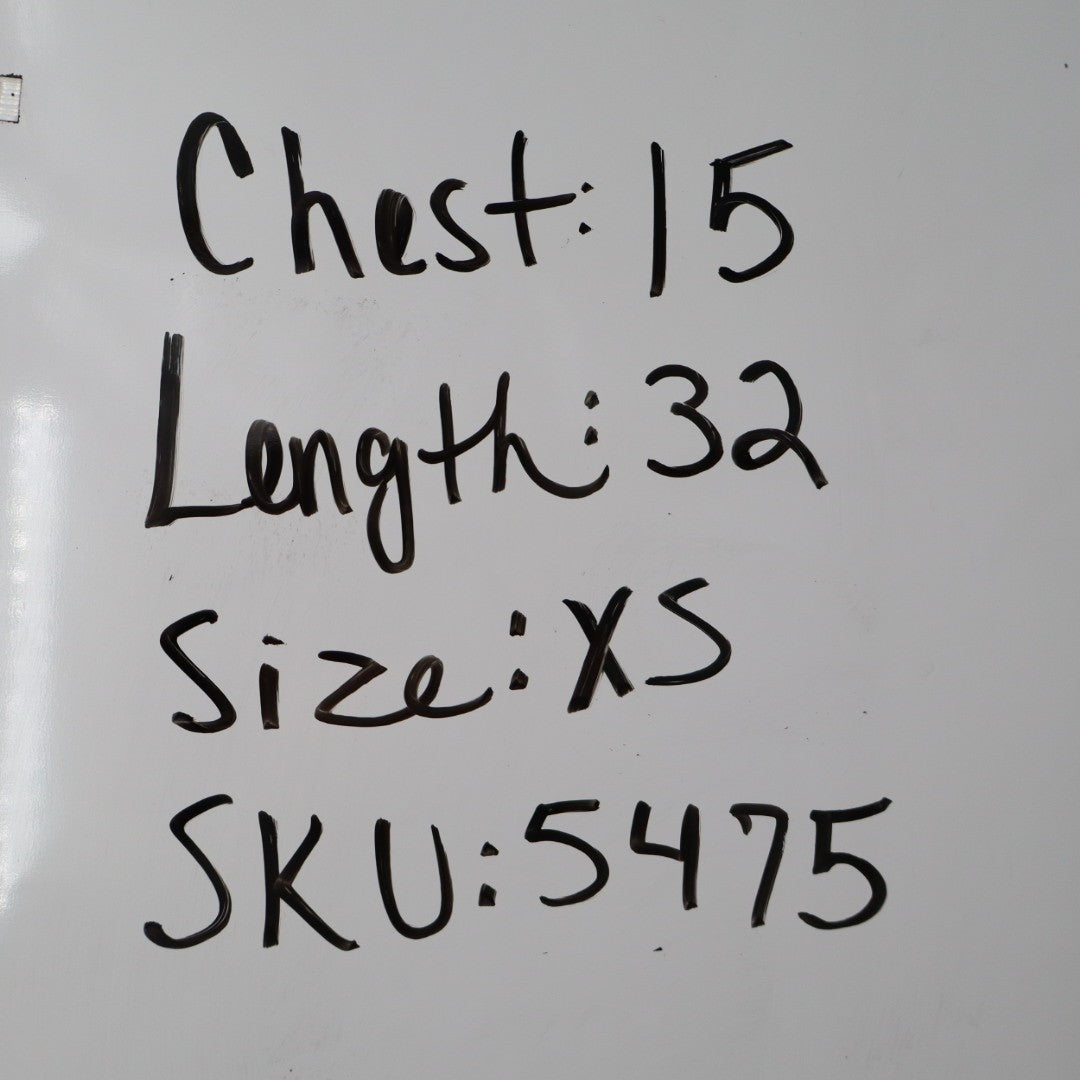 Chest: 15
Length: 32
Size: XS
SKU: 5475